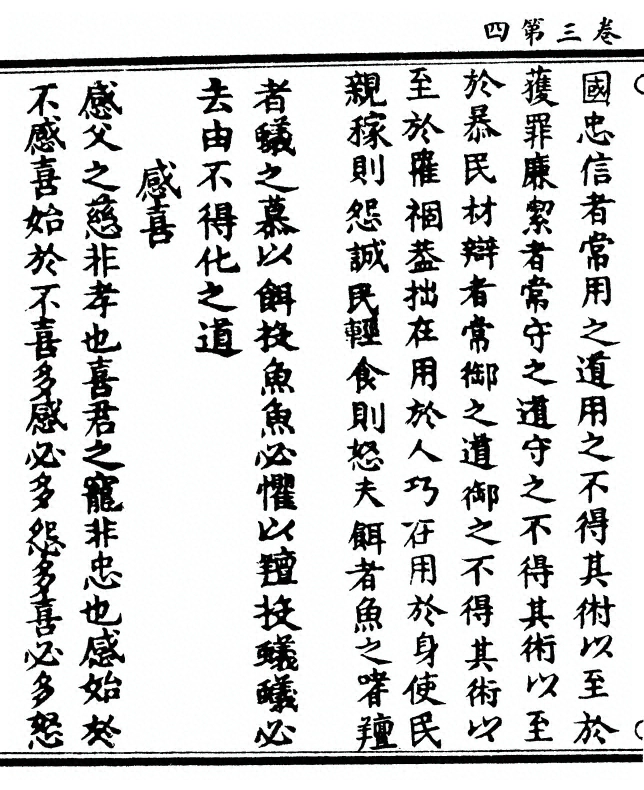 四第三卷
國忠信者常用之道用之不得其術以至於
獲罪廉絜者常守之道守之不得其術以至
於暴民材辯者常御之道御之不得其術以
至於罹禍葢拙在用於人巧在用於身使民
親稼則怨誠民輕食則怒夫餌者魚之嗜羶
者蟻之慕以餌投魚魚必懼以羶投蟻蟻必
去由不得化之道
感喜
感父之慈非孝也喜君之寵非忠也感始於
不感喜始於不喜多感必多怨多喜必多怒